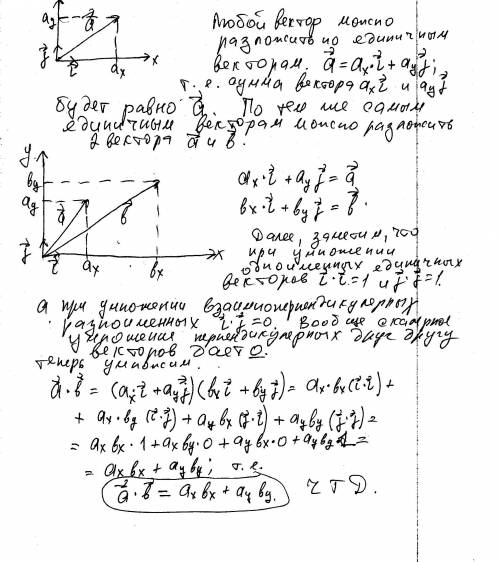 ay a⃗
j⃗ i⃗ ax x
Любой вектор можно
разложить по единичным
векторам. a⃗ = ax·i⃗ + ay j⃗;
т.е. сумма вектора ax i⃗ и ay j⃗
будет равно a⃗. По тем же самым
единичным векторам можно разложить
2 вектора a⃗ и b⃗.
y
by
ay a⃗ b⃗
j⃗ i⃗ ax bx x
ax·i⃗ + ay j⃗ = a⃗
bx·i⃗ + by j⃗ = b⃗
Далее, заметим, что
при умножении
одноименных единичных
векторов i⃗·i⃗=1 и j⃗·j⃗=1.
а при умножении взаимноперпендикулярных
разноименных i⃗·j⃗=0. Вообще скалярное
умножение перпендикулярных друг другу
векторов дает 0.
теперь умножим.
a⃗·b⃗ = (ax i⃗ + ay j⃗)(bx i⃗ + by j⃗) = ax·bx(i⃗·i⃗) +
+ ax·by(i⃗·j⃗) + ay bx(j⃗·i⃗) + ay by(j⃗·j⃗) =
= ax bx·1 + ax by·0 + ay bx·0 + ay by·1 =
= ax bx + ay by; т.е.
a⃗·b⃗ = ax bx + ay by. ЧТД.